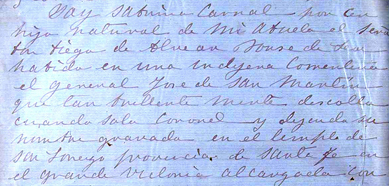 Soy sobrina carnal por ser
hijo natural de mi Abuelo el Señor
Don Diego de Alvear Ponse de Leon
habido en una indigena Correntina
el General Jose de San Martin
que tan brillente mente descolla
cuando solo Coronel y dejando su
nombre gravado en el templo de
San Lorenzo provincia de Santa fe en
el grande victoria alcanzada con